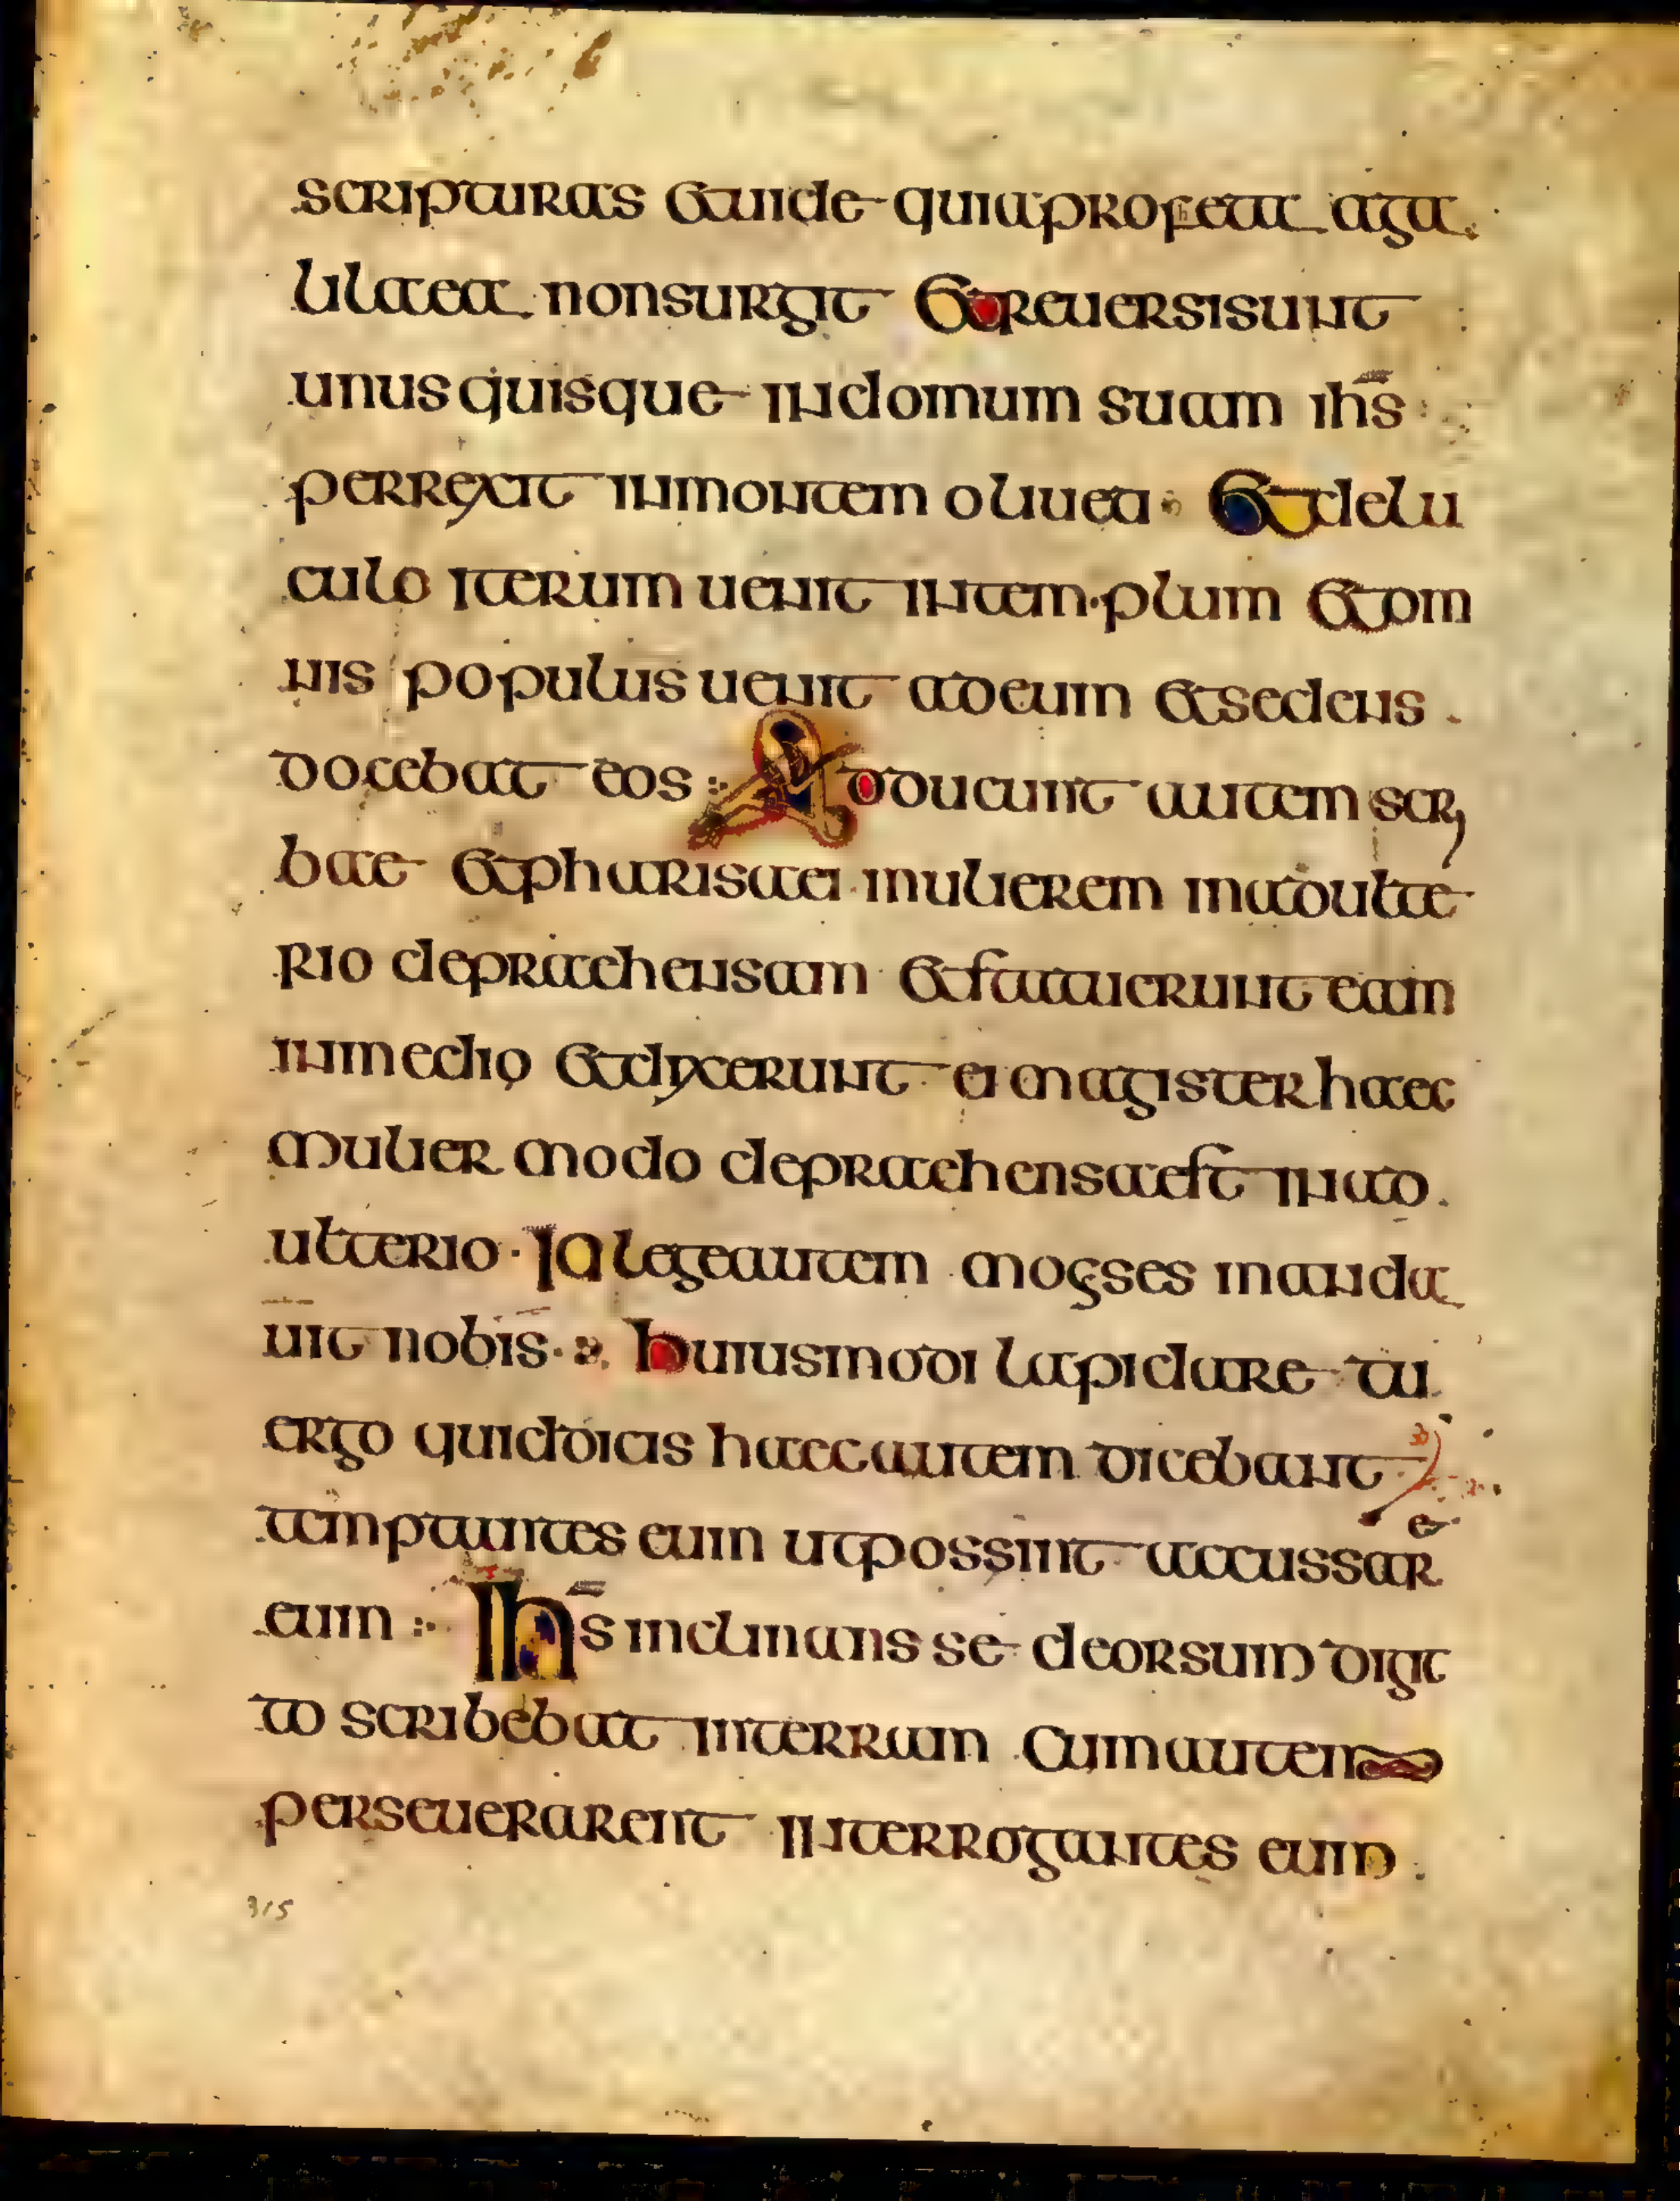 scripturas et uide quia profeta a ga
lilaea non surgit Et reuersi sunt
unus quisque in domum suam ihs̄
perrexit in montem oliueti · Et delu
culo iterum uenit in tem·plum et om
nis populus uenit ad eum et sedens .
docebat eos :· Adducunt autem scri
bae et pharisaei mulierem in adulte
rio depraehensam et statuerunt eam
in medio et dixerunt ei magister haec
mulier modo depraehensa est in ad .
ulterio · In lege autem moyses manda
uit nobis · huiusmodi lapidare tu
ergo quid dicis haec autem dicebant
temptantes eum ut possint accussare
eum :· Ihs̄ inclinans se deorsum digi
to scribebat in terram Cum autem
perseuerarent interrogantes eum .
315